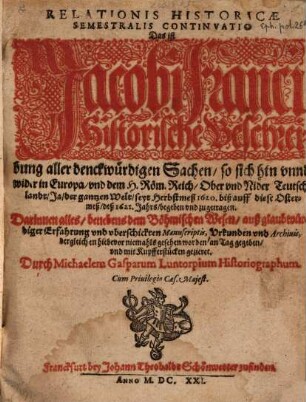 RELATIONIS HISTORICÆ
SEMESTRALIS CONTINVATIO
Das ist
Jacobi Franci
Historische Beschrei-
bung aller denckwürdigen Sachen/ so sich hin vnnd
wider in Europa/ vnd dem H. Röm. Reich/ Ober vnd Nider Teutsch-
landt/ Ja/ der gantzen Welt/ seyt Herbstmeß 1620. biß auff diese Oster-
meß/ deß 1621. Jahrs/ begeben vnd zugetragen.
Darinnen alles/ benebens dem Böhmischen Wesen/ auß glaubwür-
diger Erfahrung vnd vberschickten Manuscriptis, Urkunden vnd Archivis,
dergleichen hiebevor niemahls gesehen worden/ an Tag gegeben/
vnd mit Kupfferstücken gezieret,
Durch Michaelem Gasparum Luntorpium Historiographum.
Cum Privilegio Cæs. Majest.
Franckfurt bey Johann Theobaldt Schönwetter zufinden.
ANNO M. DC. XXI.